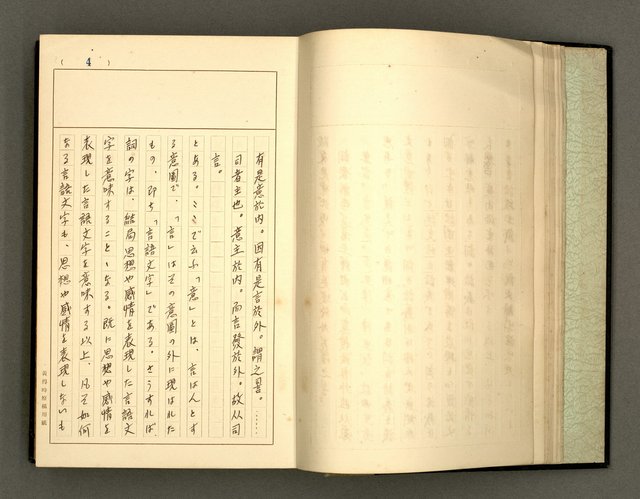 ( 4 )
有是意於内。因有是言於外。謂之䛐。……
司者主也。意主於内。而言發於外。故从司
言。
とある。ここで云ふ「意」とは、言はんとす
る意圖で、「言」はその意圖の外に現はれた
もの、即ち「言語文字」である。さうすれば、
詞の字は、結局思想や感情を表現した言語文
字を意味することゝなる。既に思想や感情を
表現した言語文字を意味する以上、凡そ如何
なる言語文字も、思想や感情を表現しないも
黃得時原稿用紙